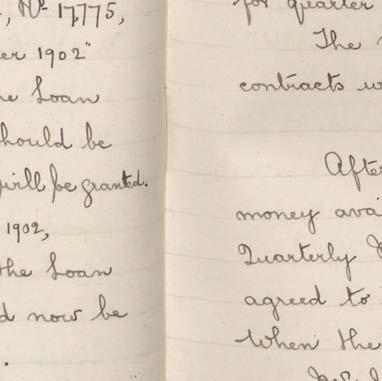 , No 17,775,
er 1902"
he Loan
hould be
will be granted.
1902,
the Loan
d now be
.
for quarter
The
contracts w
After
money avai
Quarterly
agreed to
When the